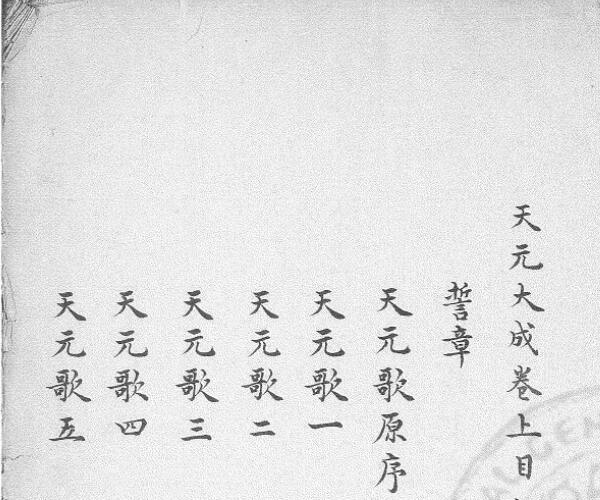 天元大成卷上目
誓章
天元歌原序
天元歌一
天元歌二
天元歌三
天元歌四
天元歌五